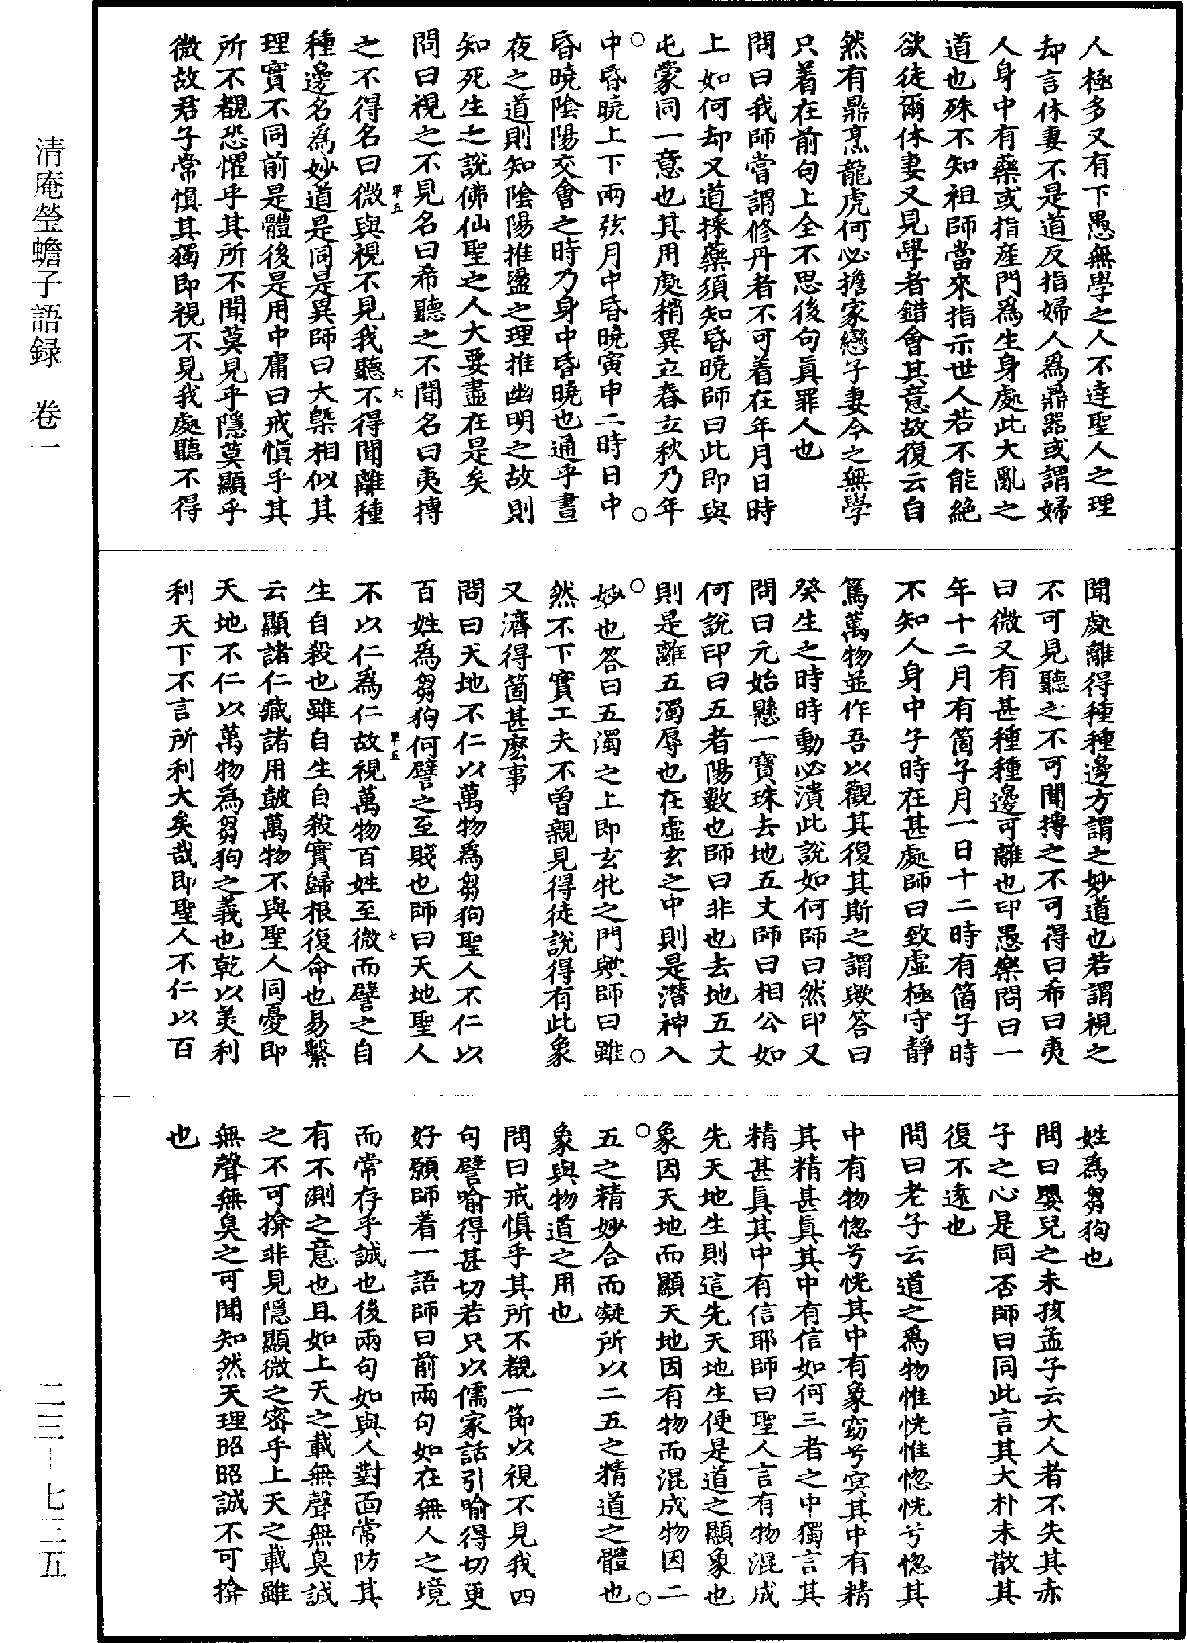 人極多又有下愚無學之人不達聖人之理
却言休妻不是道反指婦人爲鼎器或謂婦
人身中有藥或指産門爲生身處此大亂之
道也殊不知祖師當來指示世人若不能絶
欲徒爾休妻又見學者錯會其意故復云自
然有鼎烹龍虎何必擔家戀子妻今之無學
只着在前句上全不思後句真罪人也
問曰我師嘗謂修丹者不可着在年月日時
上如何却又道採藥須知昏曉師曰此即與
屯蒙同一意也其用處稍異立春立秋乃年
中昏曉上下兩弦月中昏曉寅申二時日中
昏曉陰陽交會之時乃身中昏曉也通乎晝
夜之道則知陰陽推盪之理推幽明之故則
知死生之說佛仙聖之人大要盡在是矣
問曰視之不見名曰希聽之不聞名曰夷搏
之不得名曰微與視不見我聽不得聞離種
種邊名為妙道是同是異師曰大槩相似其
理實不同前是體後是用中庸曰戒慎乎其
所不覩恐懼乎其所不聞莫見乎隱莫顯乎
微故君子常慎其獨即視不見我處聽不得
聞處離得種種邊方謂之妙道也若謂視之
不可見聽之不可聞搏之不可得曰希曰夷
曰微又有甚種種邊可離也印愚樂問曰一
年十二月有箇子月一日十二時有箇子時
不知人身中子時在甚處師曰致虛極守靜
篤萬物並作吾以觀其復其斯之謂歟答曰
癸生之時時動必潰此說如何師曰然印又
問曰元始懸一寶珠去地五丈師曰相公如
何說印曰五者陽數也師曰非也去地五丈
則是離五濁辱也在虛玄之中則是潛神入
妙也答曰五濁之上即玄牝之門歟師曰雖
然不下實工夫不曾親見得徒說得有此象
又濟得箇甚麽事
問曰天地不仁以萬物為芻狗聖人不仁以
百姓爲芻狗何譬之至賤也師曰天地聖人
不以仁爲仁故視萬物百姓至微而譬之自
生自殺也雖自生自殺實歸根復命也易繫
云顯諸仁藏諸用鼓萬物不與聖人同憂即
天地不仁以萬物為芻狗之義也乾以美利
利天下不言所利大矣哉即聖人不仁以百
姓為芻狗也
問曰嬰兒之未孩孟子云大人者不失其赤
子之心是同否師曰同此言其大朴未散其
復不遠也
問曰老子云道之爲物惟恍惟惚恍兮惚其
中有物惚兮恍其中有象窈兮冥其中有精
其精甚真其中有信如何三者之中獨言其
精甚真其中有信耶師曰聖人言有物混成
先天地生則這先天地生便是道之顯象也
象因天地而顯天地因有物而混成物因二
五之精妙合而凝所以二五之精道之體也
象與物道之用也
問曰戒慎乎其所不覩一節以視不見我四
句譬喻得甚切若只以儒家話引喻得切更
好願師着一語師曰前兩句如在無人之境
而常存乎誠也後兩句如與人對面常防其
有不測之意也且如上天之載無聲無臭誠
之不可揜非見隱顯微之密乎上天之載雖
無聲無臭之可聞知然天理昭昭誠不可揜
也
單五
六
單五
七
清庵瑩蟾子語録 卷一
二三—七二五